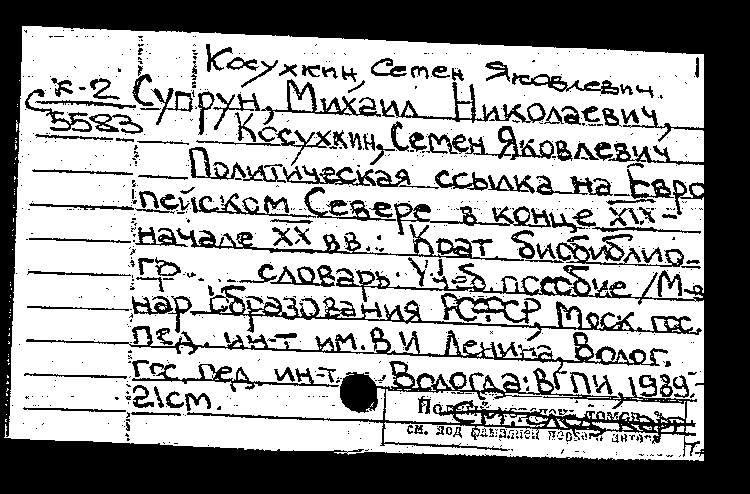 Косухкин, Семен Яковлевич.
К-2 Супрун, Михаил Николаевич,
С 5583 Косухкин, Семен Яковлевич
Политическая ссылка на Евро
пейском Севере в конце XIX-
начале XX вв.: Крат. биобиблио-
гр. словарь. Учеб. пособие / М-в
нар. образования РСФСР, Моск. гос.
пед. ин-т им. В.И Ленина, Волог.
гос. пед. ин-т. Вологда: ВГПИ, 1989.-
21см.
См. след. карт.
см. под фамилией первого автора